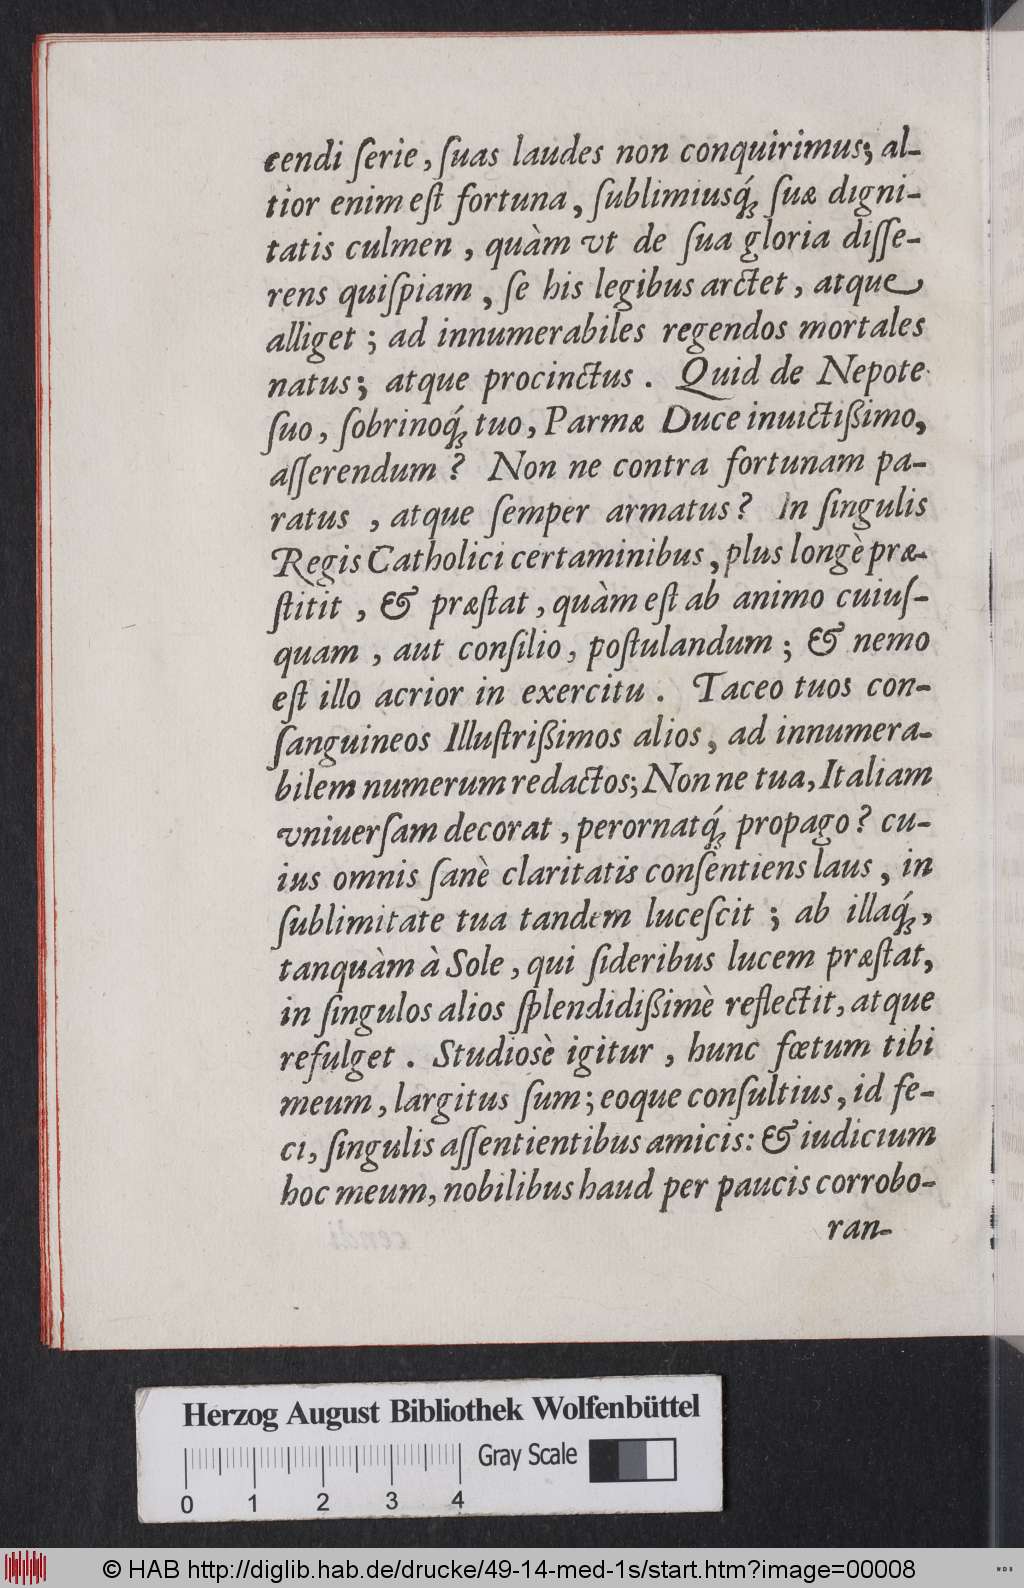 cendi ſerie, ſuas laudes non conquirimus; al-
tior enim eſt fortuna, ſublimiusq́; ſuæ digni-
tatis culmen, quàm vt de ſua gloria diſſe-
rens quiſpiam, ſe his legibus arctet, atque
alliget; ad innumerabiles regendos mortales
natus; atque procinctus. Quid de Nepote
ſuo, ſobrinoq́; tuo, Parmæ Duce inuictißimo,
aſſerendum? Non ne contra fortunam pa-
ratus, atque ſemper armatus? In ſingulis
Regis Catholici certaminibus, plus longè præ-
ſtitit, & præſtat, quàm eſt ab animo cuiuſ-
quam, aut conſilio, poſtulandum; & nemo
eſt illo acrior in exercitu. Taceo tuos con-
ſanguineos Illuſtrißimos alios, ad innumera-
bilem numerum redactos; Non ne tua, Italiam
vniuerſam decorat, perornatq́; propago? cu-
ius omnis ſanè claritatis conſentiens laus, in
ſublimitate tua tandem luceſcit; ab illaq́;,
tanquàm à Sole, qui ſideribus lucem præſtat,
in ſingulos alios ſplendidißimè reflectit, atque
refulget. Studiosè igitur, hunc fœtum tibi
meum, largitus ſum; eoque conſultius, id fe-
ci, ſingulis aſſentientibus amicis: & iudicium
hoc meum, nobilibus haud per paucis corrobo-
ran-
Herzog August Bibliothek Wolfenbüttel
Gray Scale
0 1 2 3 4
© HAB http://diglib.hab.de/drucke/49-14-med-1s/start.htm?image=00008